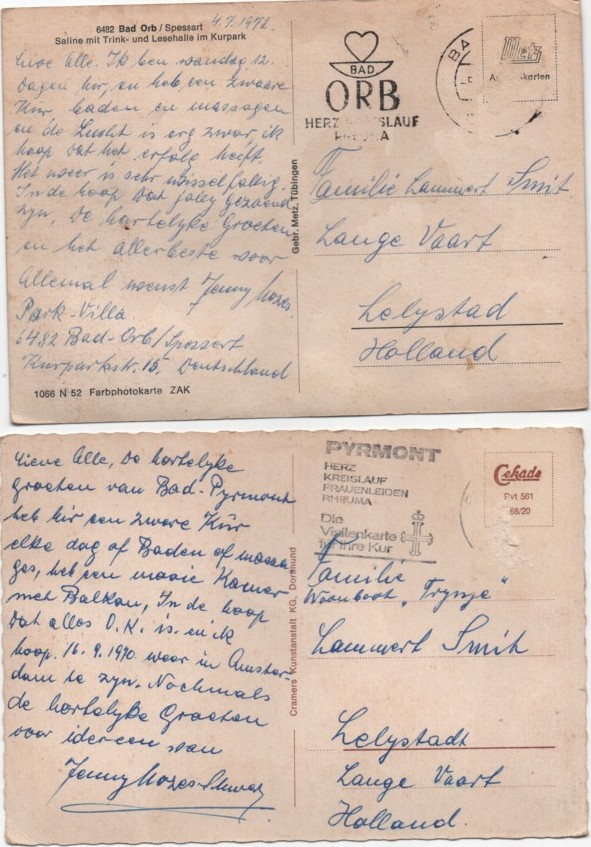 6482 Bad Orb / Spessart
Saline mit Trink- und Lesehalle im Kurpark
4.7.1972
Lieve Alle. Ik ben vandag 12
dagen hir, en heb een zwaare
Kür baden en massagen
en de Lucht is erg zwar, ik
hoop dat het erfolg heeft,
Het weer is sehr wisselfallig.
In de hoop dat jaley gezoend
zyn, De hartelyke Groeten
en het allerbeste voor
allemal wenst Jenny Mozes.
Park-Villa
6482 Bad-Orb/Spessart
Kurparkstr. 15. Deutschland
1066 N 52 Farbphotokarte ZAK
Gebr. Metz, Tübingen
BAD
ORB
HERZ KREISLAUF
RHEUMA
BA
Metz
Familie Lammert Smit
Lange Vaart
Lelystad
Holland
Lieve Alle, De hartelyke
groeten van Bad-Pyrmont
heb hir een zware Kür
elke dag of Baden of massa
ges, heb een mooie Kamer
met Balkan, In de hoop
dat alles O.K. is. en ik
hoop. 16.9.1970 weer in Amster-
dam te zyn. Nochmals
de hartelyke Groeten
voor idereen van
Jenny Mozes-
Cramers Kunstanstalt KG, Dortmund
PYRMONT
HERZ
KREISLAUF
FRAUENLEIDEN
RHEUMA
Die
Visitenkarte
für Ihre Kur
Cekade
Pvt 561
68/20
Familie
Woonboot „Trynje"
Lammert Smit
Lelystadt
Lange Vaart
Holland.